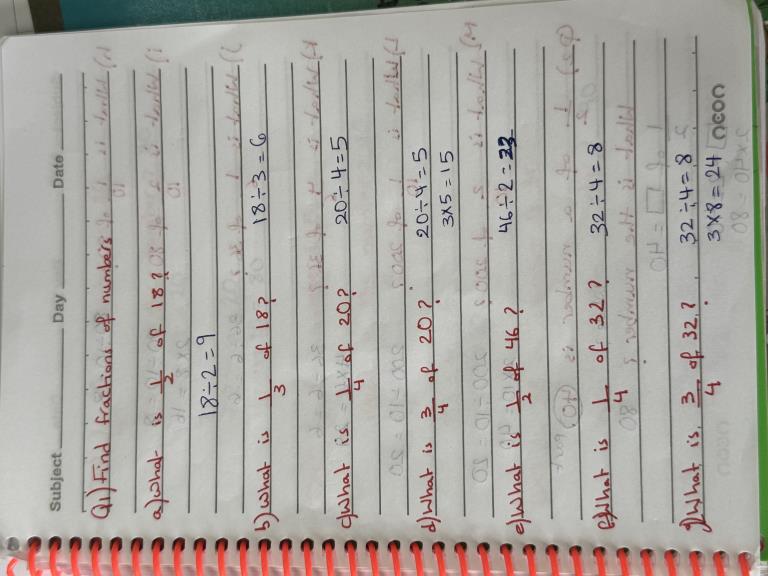 Subject Day Date
Q1) Find fractions of numbers
a) What is 1/2 of 18?
18÷2=9
b) What is 1/3 of 18? 18÷3=6
c) What is 1/4 of 20? 20÷4=5
d) What is 3/4 of 20? 20÷4=5
3x5=15
e) What is 1/2 of 46? 46÷2=23
f) What is 1/4 of 32? 32÷4=8
g) What is 3/4 of 32? 32÷4=8
3x8=24
neon